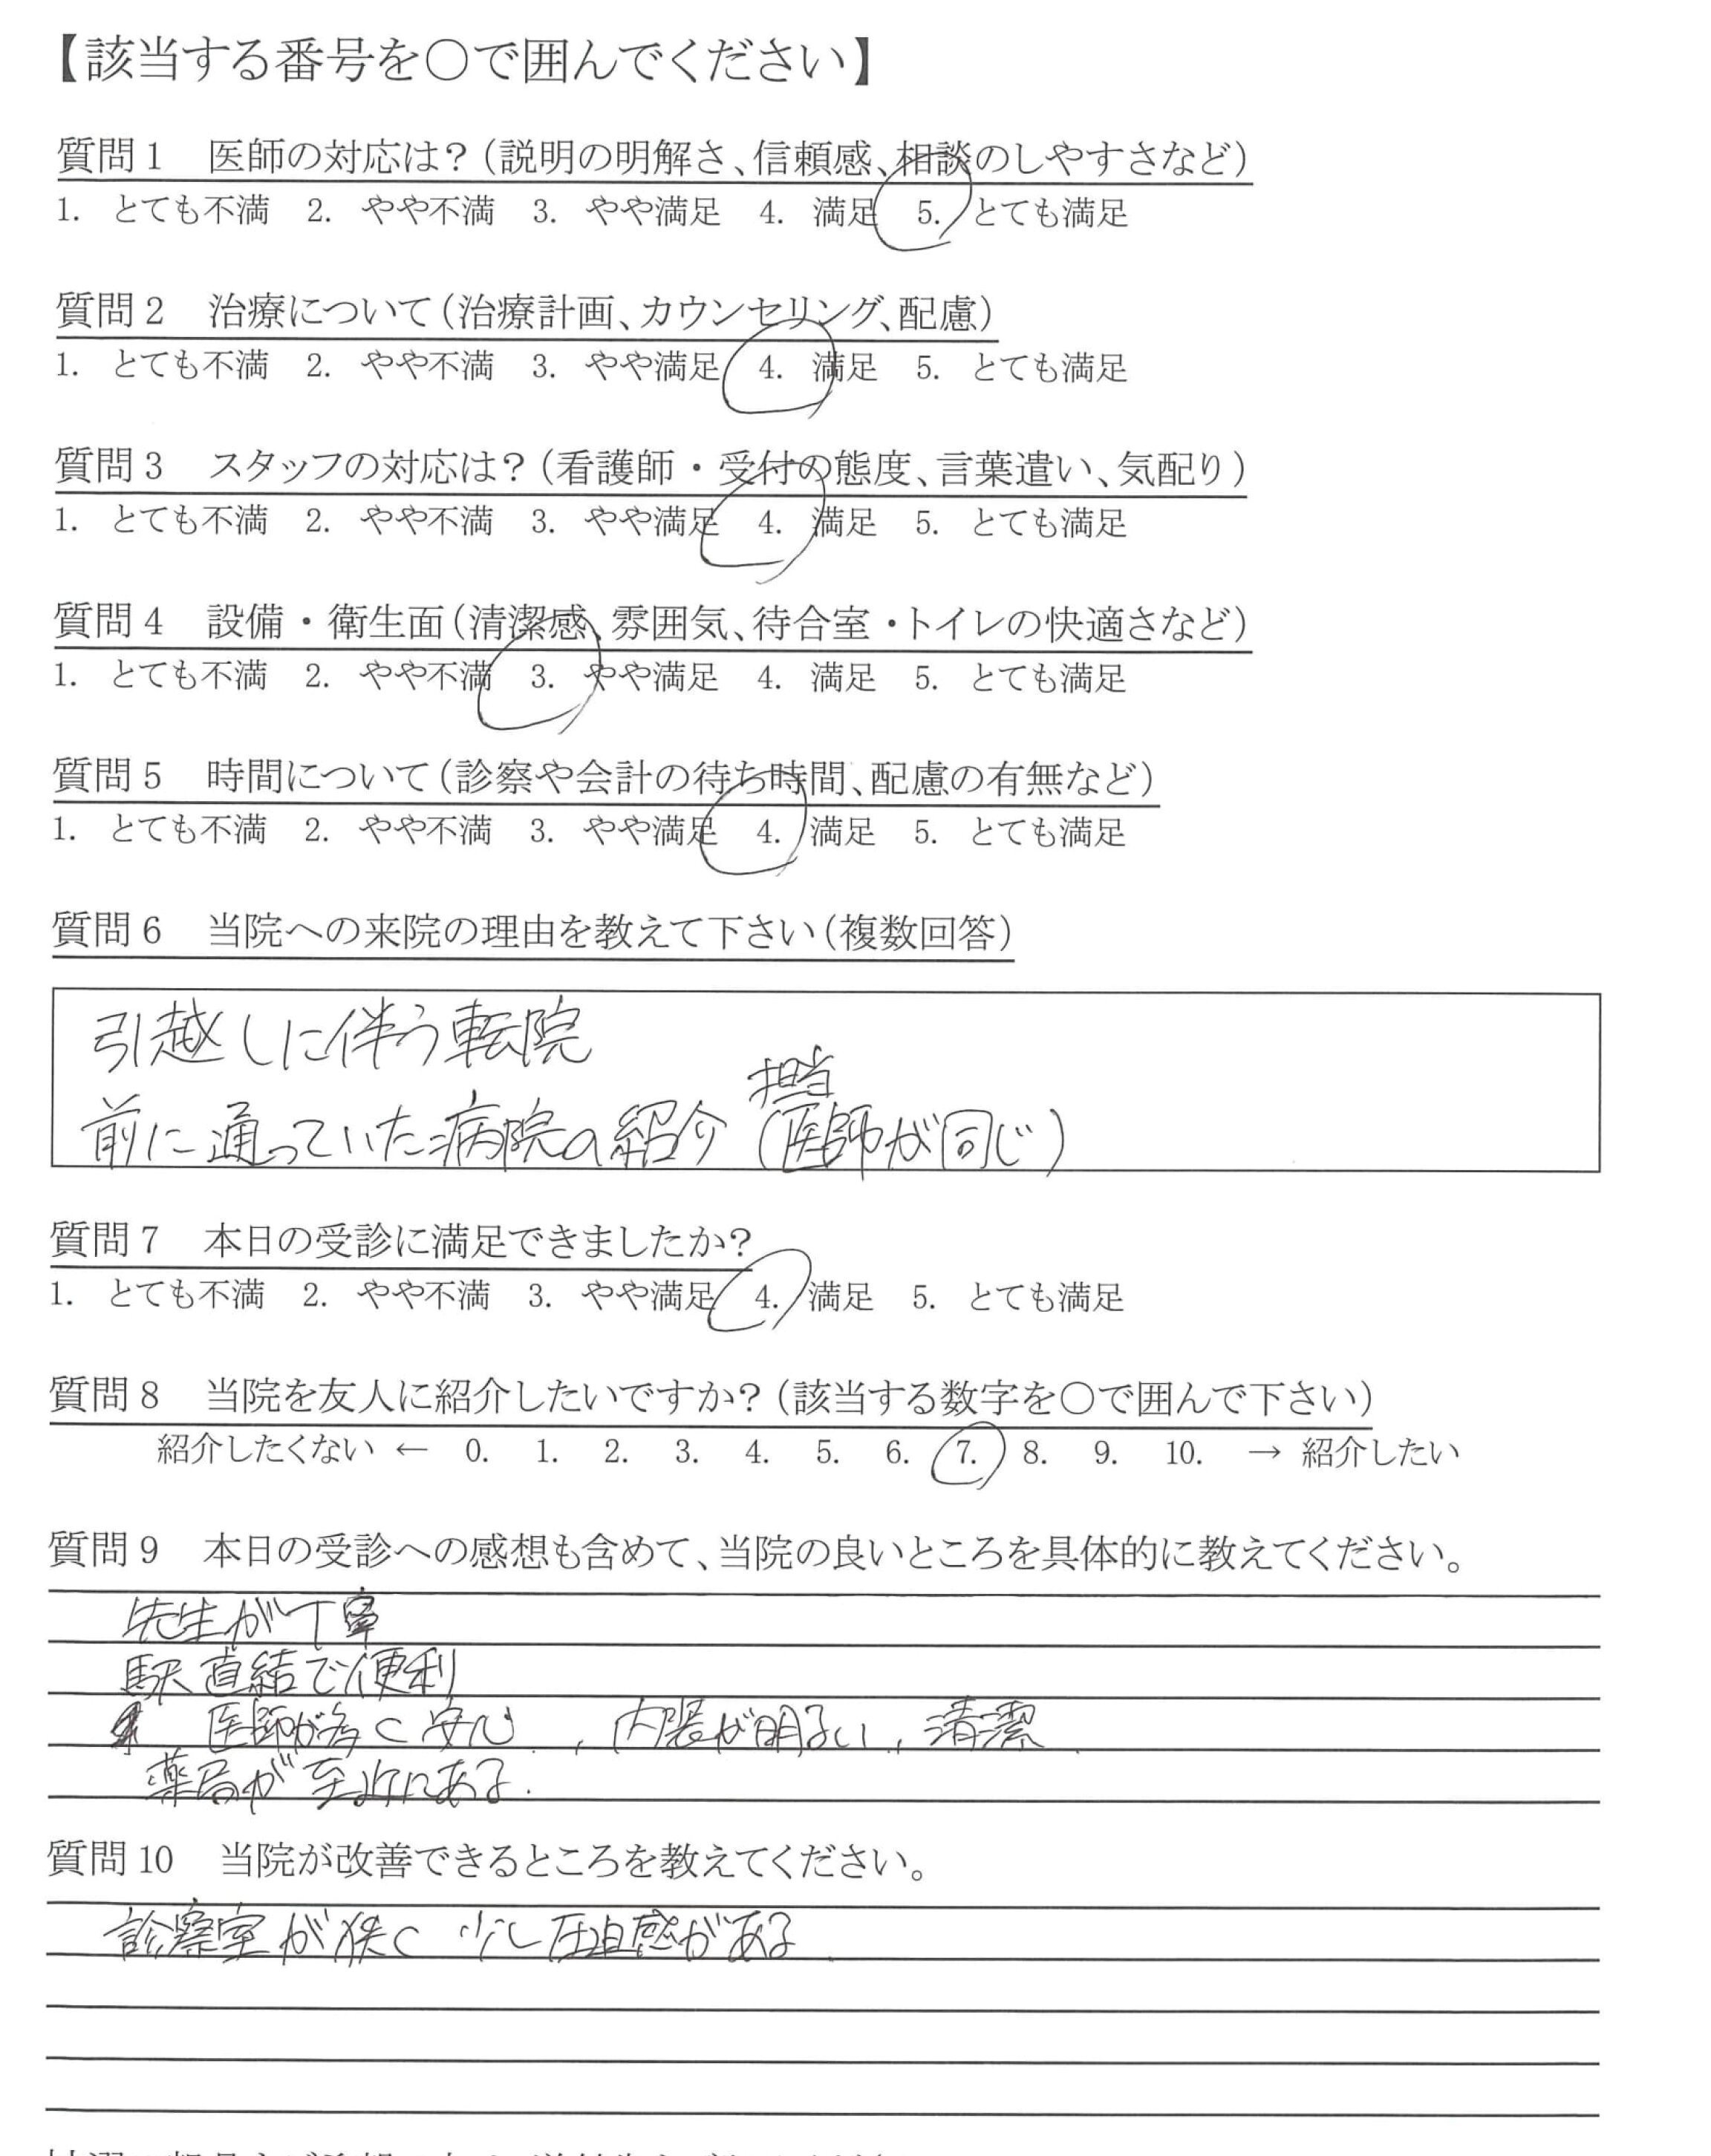 【該当する番号を〇で囲んでください】
質問1 医師の対応は?(説明の明解さ、信頼感、相談のしやすさなど)
1. とても不満 2. やや不満 3. やや満足 4. 満足 5. とても満足
質問2 治療について(治療計画、カウンセリング、配慮)
1. とても不満 2. やや不満 3. やや満足 4. 満足 5. とても満足
質問3 スタッフの対応は?(看護師・受付の態度、言葉遣い、気配り)
1. とても不満 2. やや不満 3. やや満足 4. 満足 5. とても満足
質問4 設備・衛生面(清潔感、雰囲気、待合室・トイレの快適さなど)
1. とても不満 2. やや不満 3. やや満足 4. 満足 5. とても満足
質問5 時間について(診察や会計の待ち時間、配慮の有無など)
1. とても不満 2. やや不満 3. やや満足 4. 満足 5. とても満足
質問6 当院への来院の理由を教えて下さい(複数回答)
引越しに伴う転院
担当
前に通っていた病院の紹介(医師が同じ)
質問7 本日の受診に満足できましたか?
1. とても不満 2. やや不満 3. やや満足 4. 満足 5. とても満足
質問8 当院を友人に紹介したいですか?(該当する数字を〇で囲んで下さい)
紹介したくない ← 0. 1. 2. 3. 4. 5. 6. 7. 8. 9. 10. → 紹介したい
質問9 本日の受診への感想も含めて、当院の良いところを具体的に教えてください。
先生が丁寧
駅直結で便利
医師が多く安心、内装が明るい、清潔
薬局が至近にある.
質問10 当院が改善できるところを教えてください。
診察室が狭く 少し圧迫感がある